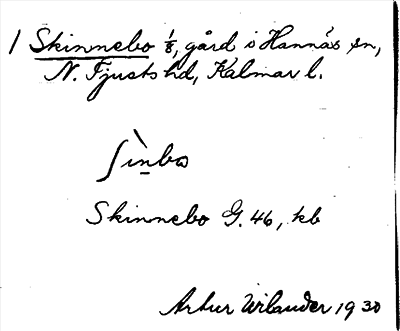 1 Skinnebo 1/8, gård i Hannäs sn,
N. Tjusts hd, Kalmar l.
ʃìnbo
Skinnebo G. 46, kb
Artur Wilander 1930